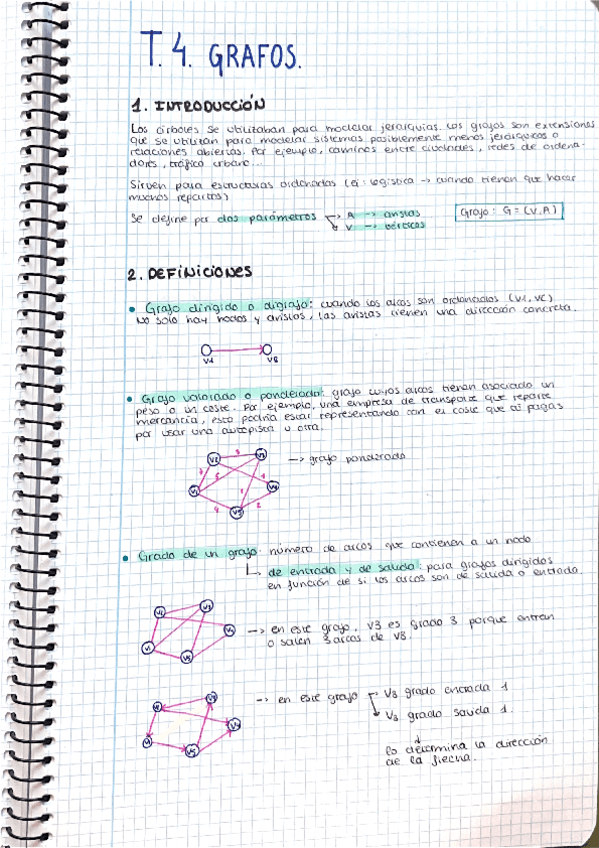 T.4. GRAFOS.
1. INTRODUCCIÓN
Los árboles se utilizaban para modelar jerarquías. Los grafos son extensiones
que se utilizan para modelar sistemas posiblemente menos jerárquicos o
relaciones abiertas. Por ejemplo, caminos entre ciudades, redes de ordena-
dores, tráfico urbano...
Sirven para estructuras ordenarlas (ej: logística → cuando tienen que hacer
muchos repartos)
Se define por dos parámetros → A → aristas
V → vértices
Grafo: G = (V,A)
2. DEFINICIONES
• Grafo dirigido o digrafo: cuando los arcos son ordenados (V1,V2)
No solo hay nodos y aristas, las aristas tienen una dirección concreta.
VA VB
• Grafo valorado o ponderado: grafo cuyos arcos tienen asociado un
peso o un coste. Por ejemplo, una empresa de transporte que reparte
mercancía, esto podría estar representando con el coste que al pagas
por usar una autopista u otra.
V2 V3
→ grafo ponderado
V1 V4
V5
• Grado de un grafo: número de arcos que contienen a un nodo
de entrada y de salida: para grafos dirigidos
en función de si los arcos son de salida o entrada.
V2 V3
V4 → en este grafo, V3 es grado 3 porque entran
o salen 3 arcos de V3.
V1 V5
→ en este grafo V3 grado entrada 1
V3 grado salida 1.
V4
V1 V5
lo determina la dirección
de la flecha.